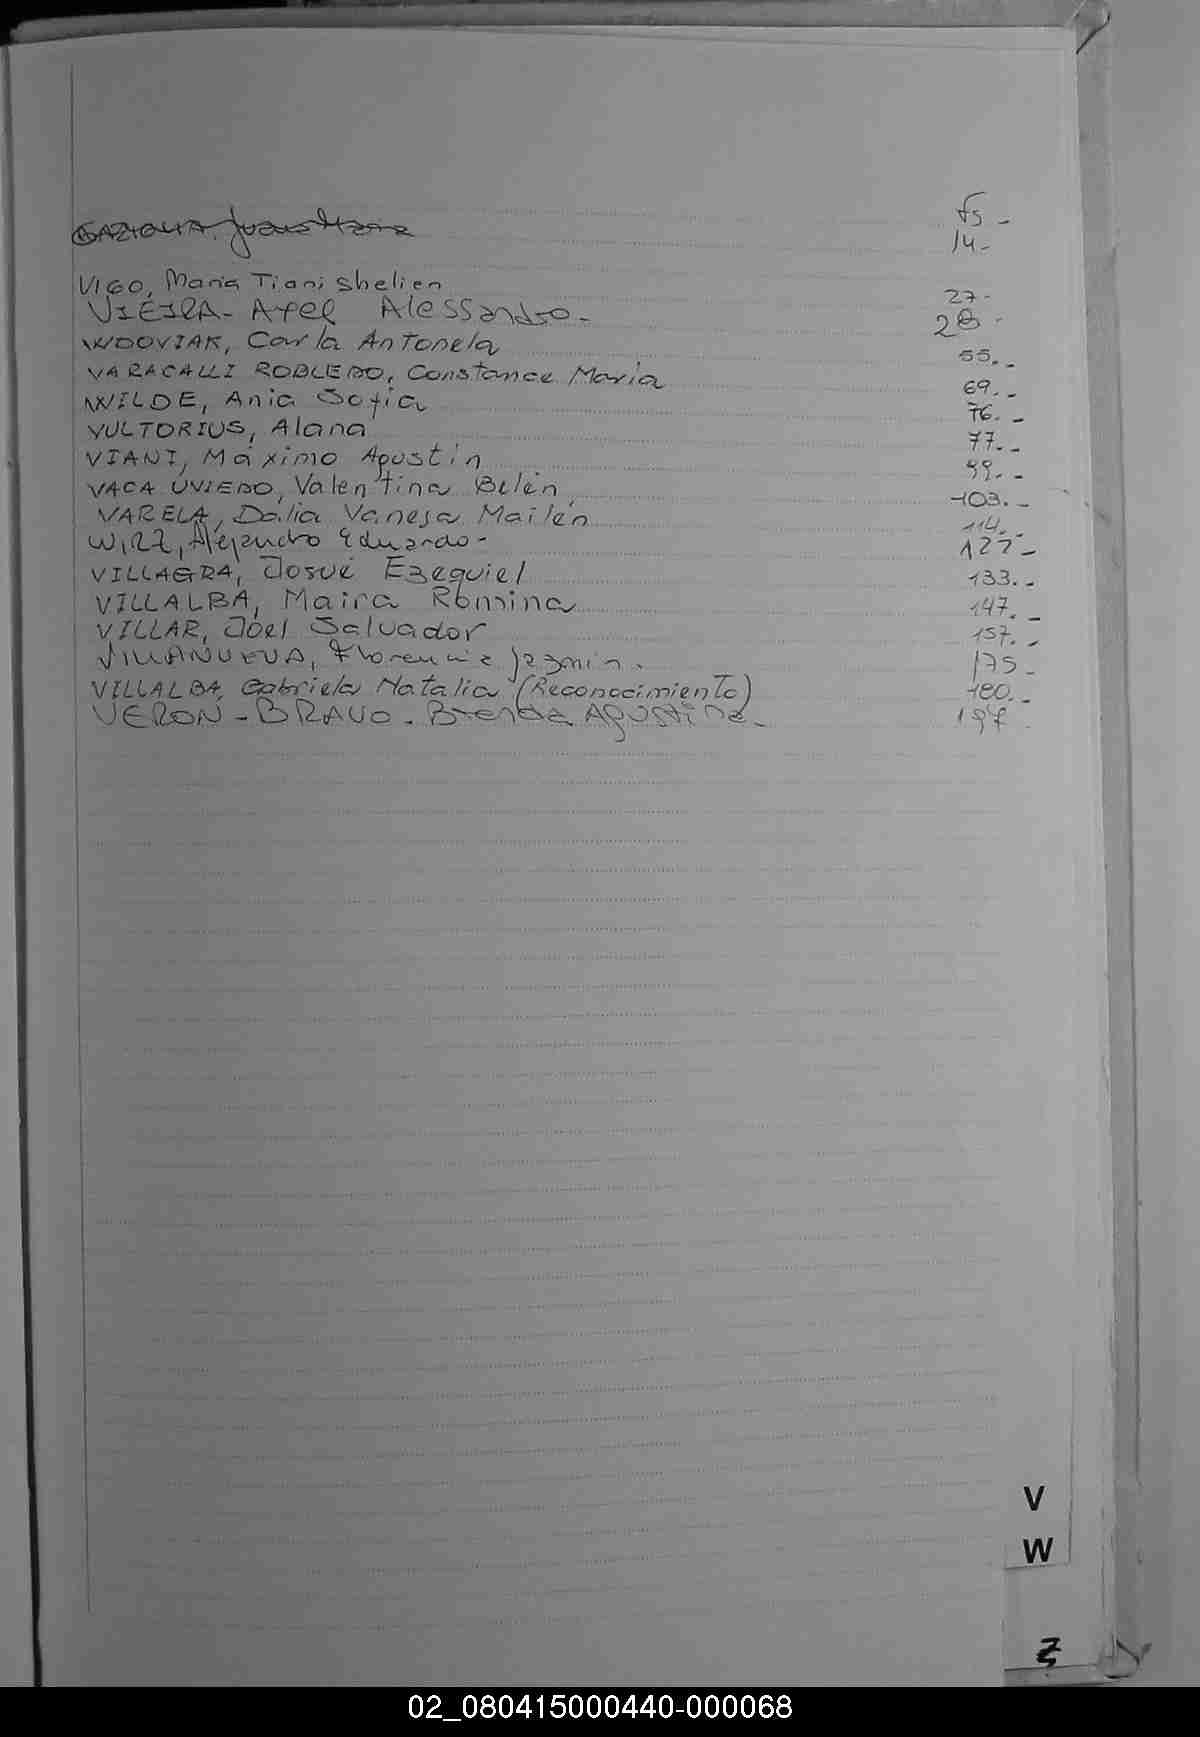 Fs -
GAZIOLIA Juan Maria 14-
VIGO, Maria Tiani shelien 27-
VIEIRA- Axel Alessandro- 28-
WDOVIAK, Carla Antonela 55.-
VARACALLI ROBLEDO, Constance Maria 69.-
WILDE, Ania Sofia 76.-
VULTORIUS, Alana 77.-
VIANI, Máximo Agustín 99.-
VACA UVIEDO, Valentina Belén 103.-
VARELA, Dalia Vanesa Mailén 114.-
WIRZ, Alejandro Eduardo- 127-
VILLAGRA, Josué Ezequiel 133.-
VILLALBA, Maira Romina 147.-
VILLAR, Joel Salvador 157.-
VILLANUEVA, Florencia Jazmin. 175-
VILLALBA, Gabriela Natalia (Reconocimiento) 180.-
VERON-BRAVO. Brenda Agustina- 197.
V
W
Z
02_080415000440-000068